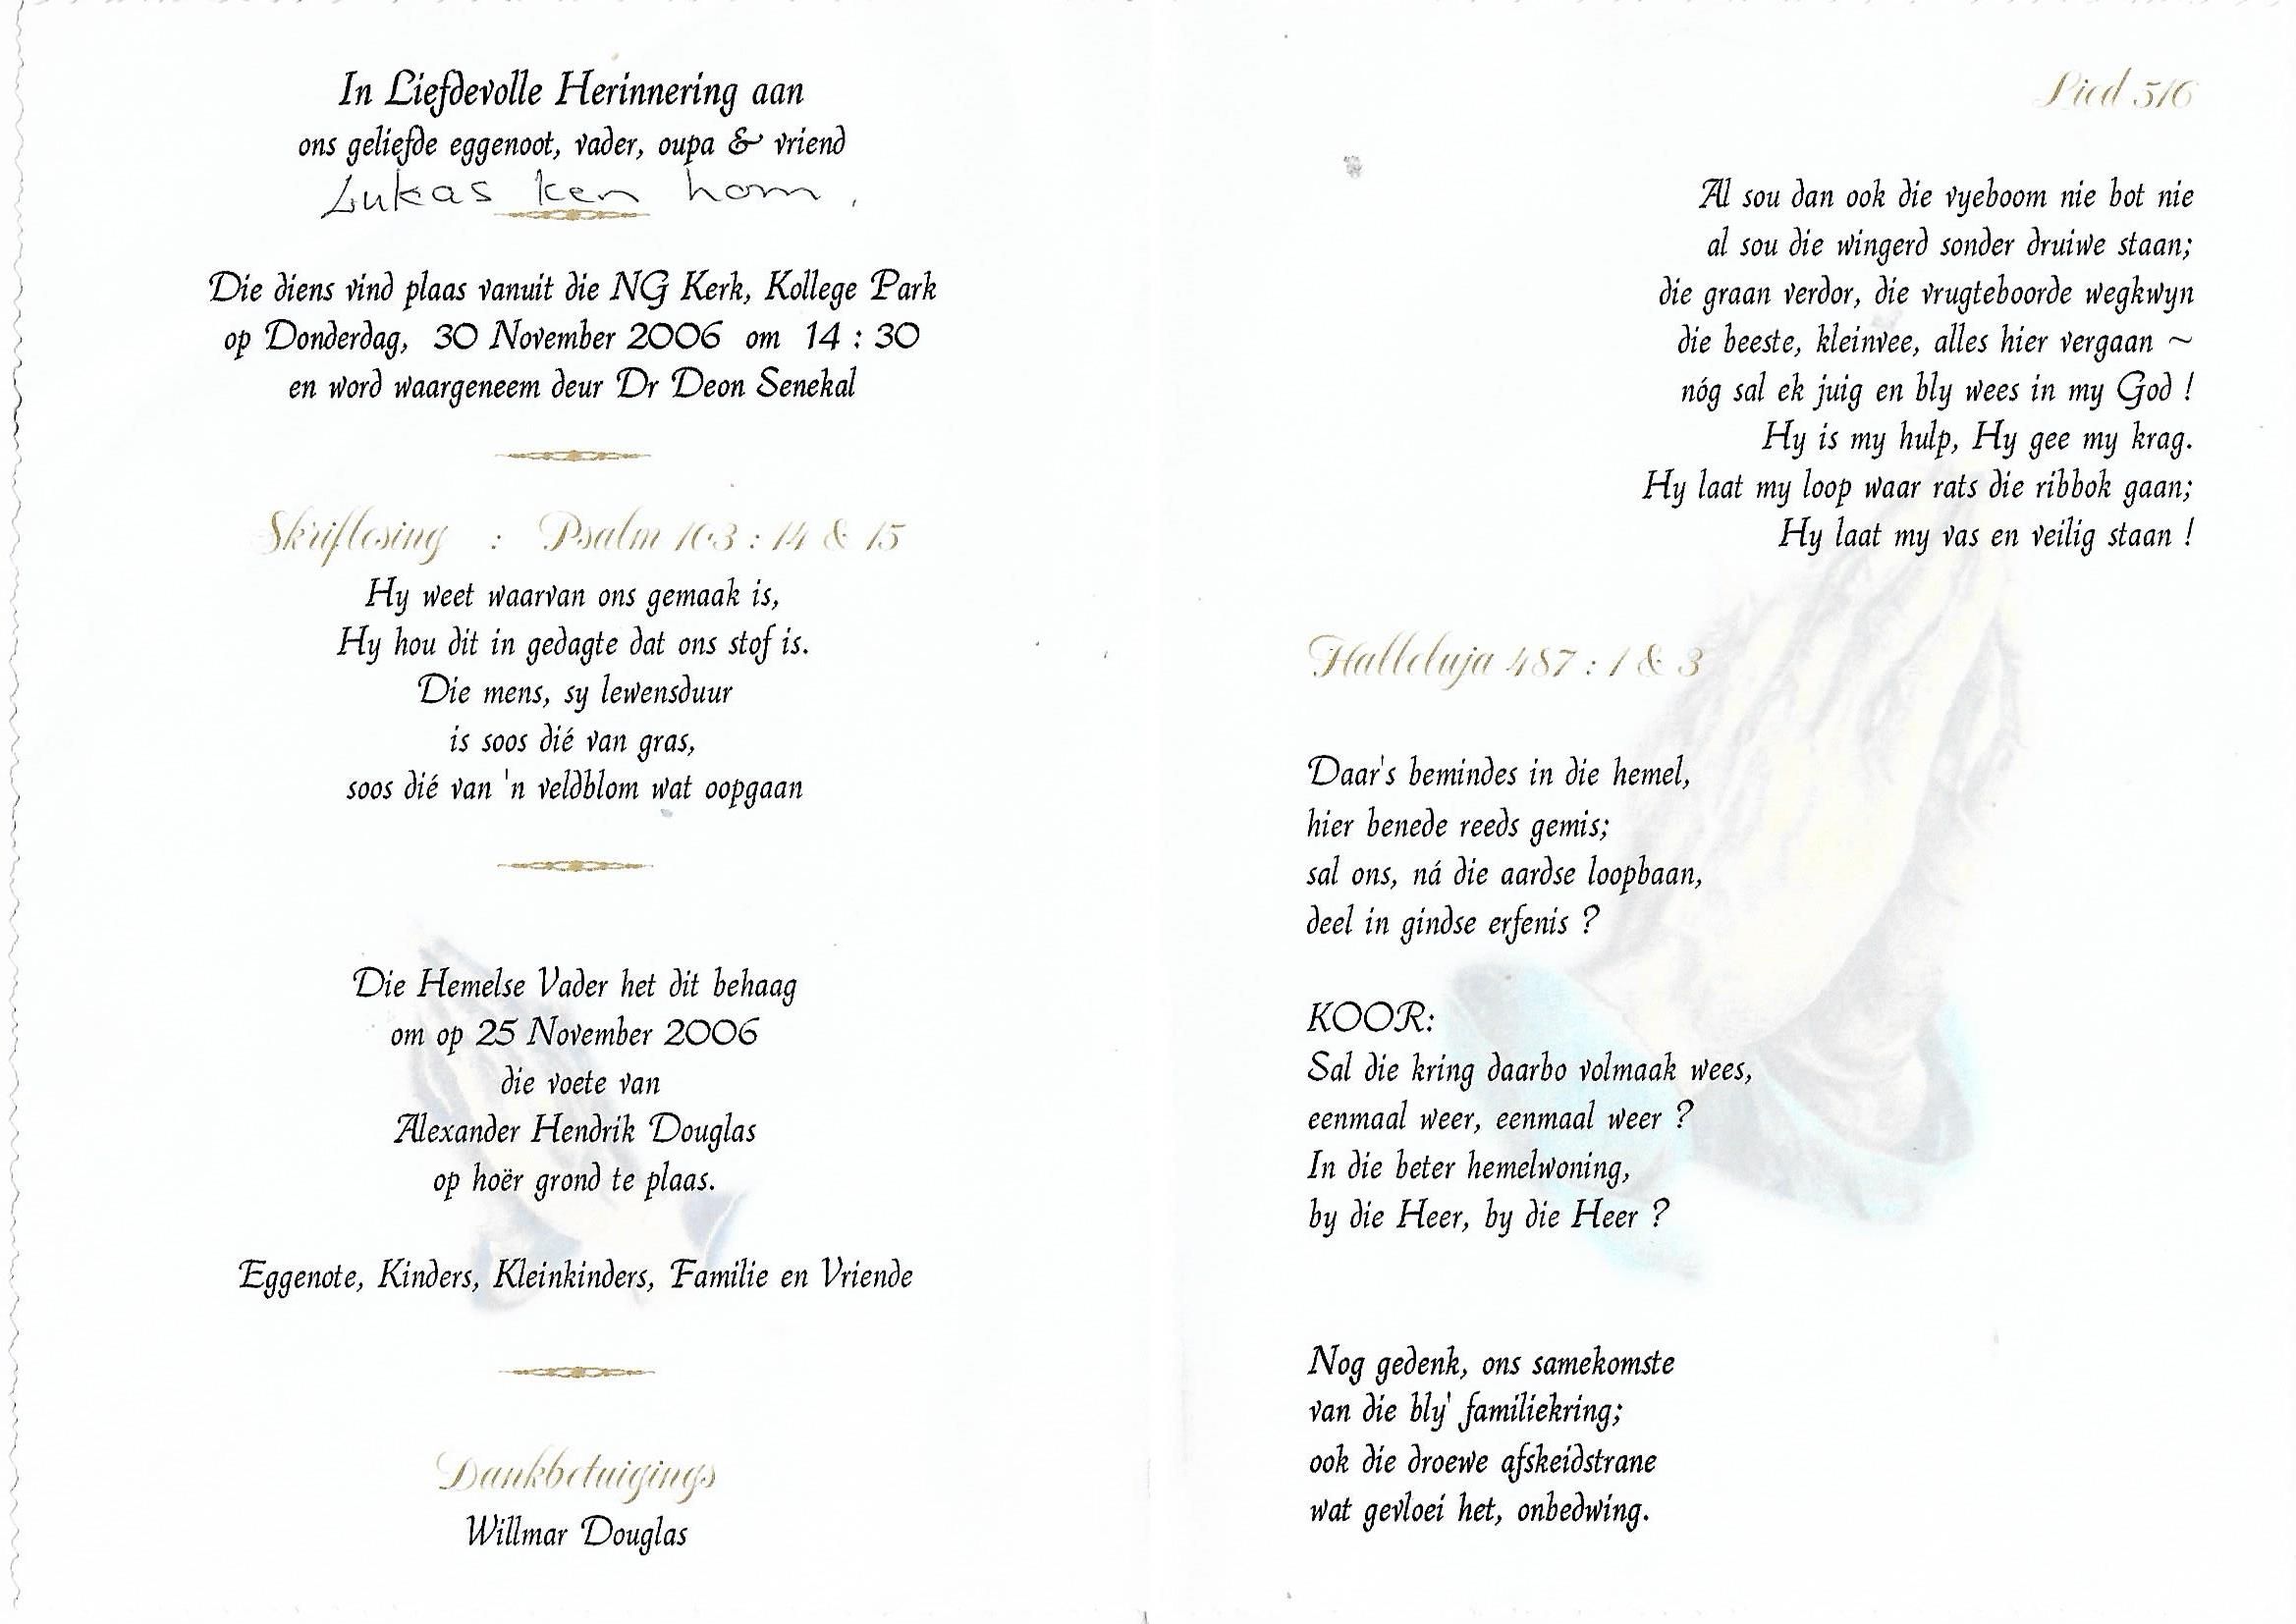 In Liefdevolle Herinnering aan
ons geliefde eggenoot, vader, oupa & vriend
Lukas ken hom.
Die diens vind plaas vanuit die NG Kerk, Kollege Park
op Donderdag, 30 November 2006 om 14 : 30
en word waargeneem deur Dr Deon Senekal
Skriflesing : Psalm 103 : 14 & 15
Hy weet waarvan ons gemaak is,
Hy hou dit in gedagte dat ons stof is.
Die mens, sy lewensduur
is soos dié van gras,
soos dié van 'n veldblom wat oopgaan
Die Hemelse Vader het dit behaag
om op 25 November 2006
die voete van
Alexander Hendrik Douglas
op hoër grond te plaas.
Eggenote, Kinders, Kleinkinders, Familie en Vriende
Dankbetuigings
Willmar Douglas
Lied 516
Al sou dan ook die vyeboom nie bot nie
al sou die wingerd sonder druiwe staan;
die graan verdor, die vrugteboorde wegkwyn
die beeste, kleinvee, alles hier vergaan ~
nóg sal ek juig en bly wees in my God !
Hy is my hulp, Hy gee my krag.
Hy laat my loop waar rats die ribbok gaan;
Hy laat my vas en veilig staan !
Halleluja 487 : 1 & 3
Daar's bemindes in die hemel,
hier benede reeds gemis;
sal ons, ná die aardse loopbaan,
deel in gindse erfenis ?
KOOR:
Sal die kring daarbo volmaak wees,
eenmaal weer, eenmaal weer ?
In die beter hemelwoning,
by die Heer, by die Heer ?
Nog gedenk, ons samekomste
van die bly' familiekring;
ook die droewe afskeidstrane
wat gevloei het, onbedwing.